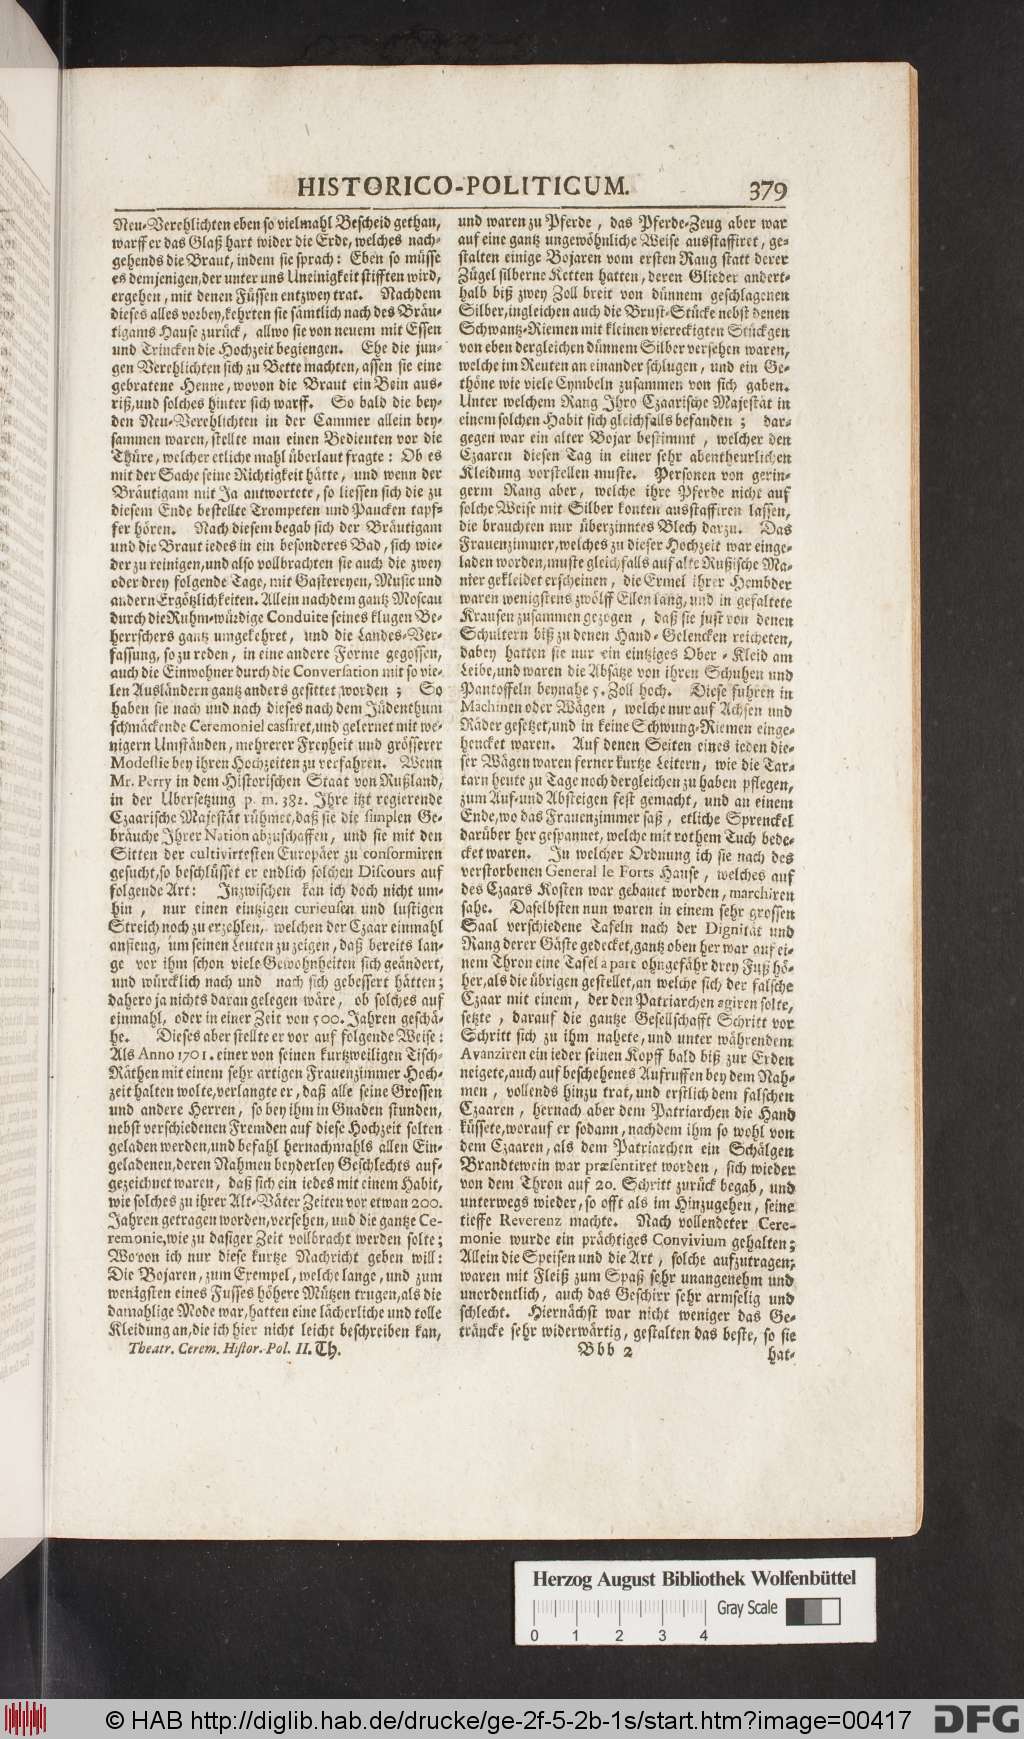 HISTORICO-POLITICUM. 379
Neu-Verehlichten eben so vielmahl Bescheid gethan,
warff er das Glaß hart wider die Erde, welches nach-
gehends die Braut, indem sie sprach: Eben so müsse
es demjenigen, der unter uns Uneinigkeit stifften wird,
ergehen, mit denen Füssen entzwey trat. Nachdem
dieses alles vorbey, kehrten sie sämtlich nach des Bräu-
tigams Hause zurück, allwo sie von neuem mit Essen
und Trincken die Hochzeit begiengen. Ehe die jun-
gen Verehlichten sich zu Bette machten, assen sie eine
gebratene Henne, wovon die Braut ein Bein aus-
riß, und solches hinter sich warff. So bald die bey-
den Neu-Verehlichten in der Cammer allein bey-
sammen waren, stellte man einen Bedienten vor die
Thüre, welcher etliche mahl überlaut fragte: Ob es
mit der Sache seine Richtigkeit hätte, und wenn der
Bräutigam mit Ja antwortete, so liessen sich die zu
diesem Ende bestellte Trompeten und Paucken tapf-
fer hören. Nach diesem begab sich der Bräutigam
und die Braut iedes in ein besonderes Bad, sich wie-
der zu reinigen, und also vollbrachten sie auch die zwey
oder drey folgende Tage, mit Gastereyen, Music und
andern Ergötzlichkeiten. Allein nachdem gantz Moscau
durch die Ruhm-würdige Conduite seines klugen Be-
herrschers gantz umgekehret, und die Landes-Ver-
fassung, so zu reden, in eine andere Forme gegossen,
auch die Einwohner durch die Conversation mit so vie-
len Ausländern gantz anders gesittet worden; So
haben sie nach und nach dieses nach dem Jüdenthum
schmäckende Ceremoniel cassiret, und gelernet mit we-
nigern Umständen, mehrerer Freyheit und grösserer
Modestie bey ihren Hochzeiten zu verfahren. Wenn
Mr. Perry in dem Historischen Staat von Rußland,
in der Ubersetzung p. m. 382. Ihre itzt regierende
Czaarische Majestät rühmet, daß sie die simplen Ge-
bräuche Ihrer Nation abzuschaffen, und sie mit den
Sitten der cultivirtesten Europäer zu conformiren
gesucht, so beschlüsset er endlich solchen Discours auf
folgende Art: Inzwischen kan ich doch nicht um-
hin, nur einen eintzigen curieusen und lustigen
Streich noch zu erzehlen, welchen der Czaar einmahl
anfieng, um seinen Leuten zu zeigen, daß bereits lan-
ge vor ihm schon viele Gewohnheiten sich geändert,
und würcklich nach und nach sich gebessert hätten;
dahero ja nichts daran gelegen wäre, ob solches auf
einmahl, oder in einer Zeit von 500. Jahren geschä-
he. Dieses aber stellte er vor auf folgende Weise:
Als Anno 1701. einer von seinen kurtzweiligen Tisch-
Räthen mit einem sehr artigen Frauenzimmer Hoch-
zeit halten wolte, verlangte er, daß alle seine Grossen
und andere Herren, so bey ihm in Gnaden stunden,
nebst verschiedenen Fremden auf diese Hochzeit solten
geladen werden, und befahl hernachmahls allen Ein-
geladenen, deren Nahmen beyderley Geschlechts auf-
gezeichnet waren, daß sich ein iedes mit einem Habit,
wie solches zu ihrer Alt-Väter Zeiten vor etwan 200.
Jahren getragen worden, versehen, und die gantze Ce-
remonie, wie zu dasiger Zeit vollbracht werden solte;
Wovon ich nur diese kurtze Nachricht geben will:
Die Bojaren, zum Exempel, welche lange, und zum
wenigsten eines Fusses höhere Mützen trugen, als die
damahlige Mode war, hatten eine lächerliche und tolle
Kleidung an, die ich hier nicht leicht beschreiben kan,
Theatr. Cerem. Histor. Pol. II. Th.
und waren zu Pferde, das Pferde-Zeug aber war
auf eine gantz ungewöhnliche Weise ausstaffiret, ge-
stalten einige Bojaren vom ersten Rang statt derer
Zügel silberne Ketten hatten, deren Glieder andert-
halb biß zwey Zoll breit von dünnem geschlagenen
Silber, ingleichen auch die Brust-Stücke nebst denen
Schwantz-Riemen mit kleinen viereckigten Stückgen
von eben dergleichen dünnem Silber versehen waren,
welche im Reuten an einander schlugen, und ein Ge-
thöne wie viele Cymbeln zusammen von sich gaben.
Unter welchem Rang Ihro Czaarische Majestät in
einem solchen Habit sich gleichfalls befanden; dar-
gegen war ein alter Bojar bestimmt, welcher den
Czaaren diesen Tag in einer sehr abentheurlichen
Kleidung vorstellen muste. Personen von gerin-
germ Rang aber, welche ihre Pferde nicht auf
solche Weise mit Silber konten ausstaffiren lassen,
die brauchten nur überzinntes Blech darzu. Das
Frauenzimmer, welches zu dieser Hochzeit war einge-
laden worden, muste gleichfalls auf alte Rußische Ma-
nier gekleidet erscheinen, die Ermel ihrer Hembder
waren wenigstens zwölff Ellen lang, und in gefaltete
Krausen zusammen gezogen, daß sie just von denen
Schultern biß zu denen Hand-Gelencken reicheten,
dabey hatten sie nur ein eintziges Ober-Kleid am
Leibe, und waren die Absätze von ihren Schuhen und
Pantoffeln beynahe 5. Zoll hoch. Diese fuhren in
Machinen oder Wägen, welche nur auf Achsen und
Räder gesetzet, und in keine Schwung-Riemen einge-
hencket waren. Auf denen Seiten eines ieden die-
ser Wägen waren ferner kurtze Leitern, wie die Tar-
tarn heute zu Tage noch dergleichen zu haben pflegen,
zum Auf- und Absteigen fest gemacht, und an einem
Ende, wo das Frauenzimmer saß, etliche Sprenckel
darüber her gespannet, welche mit rothem Tuch bede-
cket waren. In welcher Ordnung ich sie nach des
verstorbenen General le Forts Hause, welches auf
des Czaars Kosten war gebauet worden, marchiren
sahe. Daselbsten nun waren in einem sehr grossen
Saal verschiedene Tafeln nach der Dignität und
Rang derer Gäste gedecket, gantz oben her war auf ei-
nem Thron eine Tafel à part ohngefähr drey Fuß hö-
her, als die übrigen gestellet, an welche sich der falsche
Czaar mit einem, der den Patriarchen agiren solte,
setzte, darauf die gantze Gesellschafft Schritt vor
Schritt sich zu ihm nahete, und unter währendem
Avanziren ein ieder seinen Kopff bald biß zur Erden
neigete, auch auf beschehenes Aufruffen bey dem Nah-
men, vollends hinzu trat, und erstlich dem falschen
Czaaren, hernach aber dem Patriarchen die Hand
küssete, worauf er sodann, nachdem ihm so wohl von
dem Czaaren, als dem Patriarchen ein Schälgen
Brandtewein war præsentiret worden, sich wieder
von dem Thron auf 20. Schritt zurück begab, und
unterwegs wieder, so offt als im Hinzugehen, seine
tieffe Reverenz machte. Nach vollendeter Cere-
monie wurde ein prächtiges Convivium gehalten;
Allein die Speisen und die Art, solche aufzutragen,
waren mit Fleiß zum Spaß sehr unangenehm und
unordentlich, auch das Geschirr sehr armselig und
schlecht. Hiernächst war nicht weniger das Ge-
träncke sehr widerwärtig, gestalten das beste, so sie
Bbb 2 hat-
Herzog August Bibliothek Wolfenbüttel
Gray Scale
0 1 2 3 4
© HAB http://diglib.hab.de/drucke/ge-2f-5-2b-1s/start.htm?image=00417
DFG